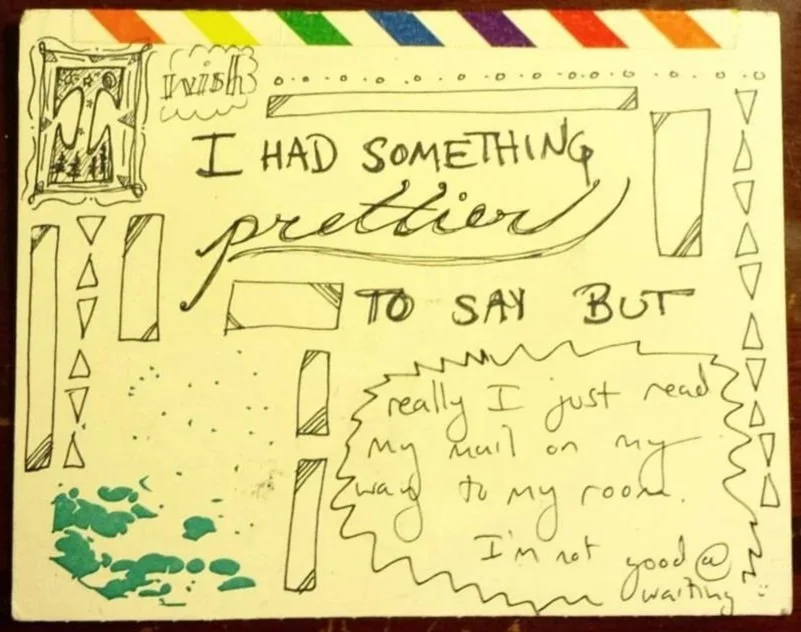 wish
I HAD SOMETHING
prettier
TO SAY BUT
really I just read
my mail on my
way to my room.
I'm not good @
waiting